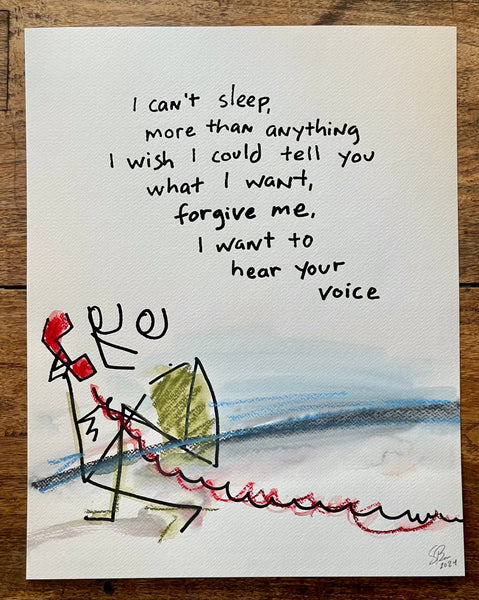 I can't sleep,
more than anything
I wish I could tell you
what I want,
forgive me,
I want to
hear your
voice
2024